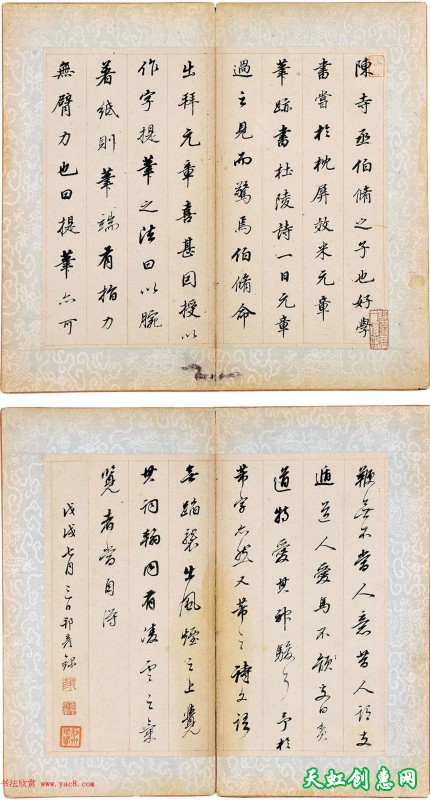 陳寺丞伯脩之子也好學
書嘗於枕屏效米元章
筆跡書杜陵詩一日元章
過之見而驚焉伯脩命
出拜元章喜甚因授以
作字提筆之法曰以腕
著紙則筆端有指力
無臂力也曰提筆亦可
輒無不當人意昔人謂支
遁道人愛馬不韻支曰貧
道特愛其神駿耳予於
芾字亦然又芾之詩文語
無蹈襲出風煙之上覺
其詞翰同有凌雲之氣
覽者當自得
戊戌七月三日
書法欣賞 www.yac8.com
天虹创惠网